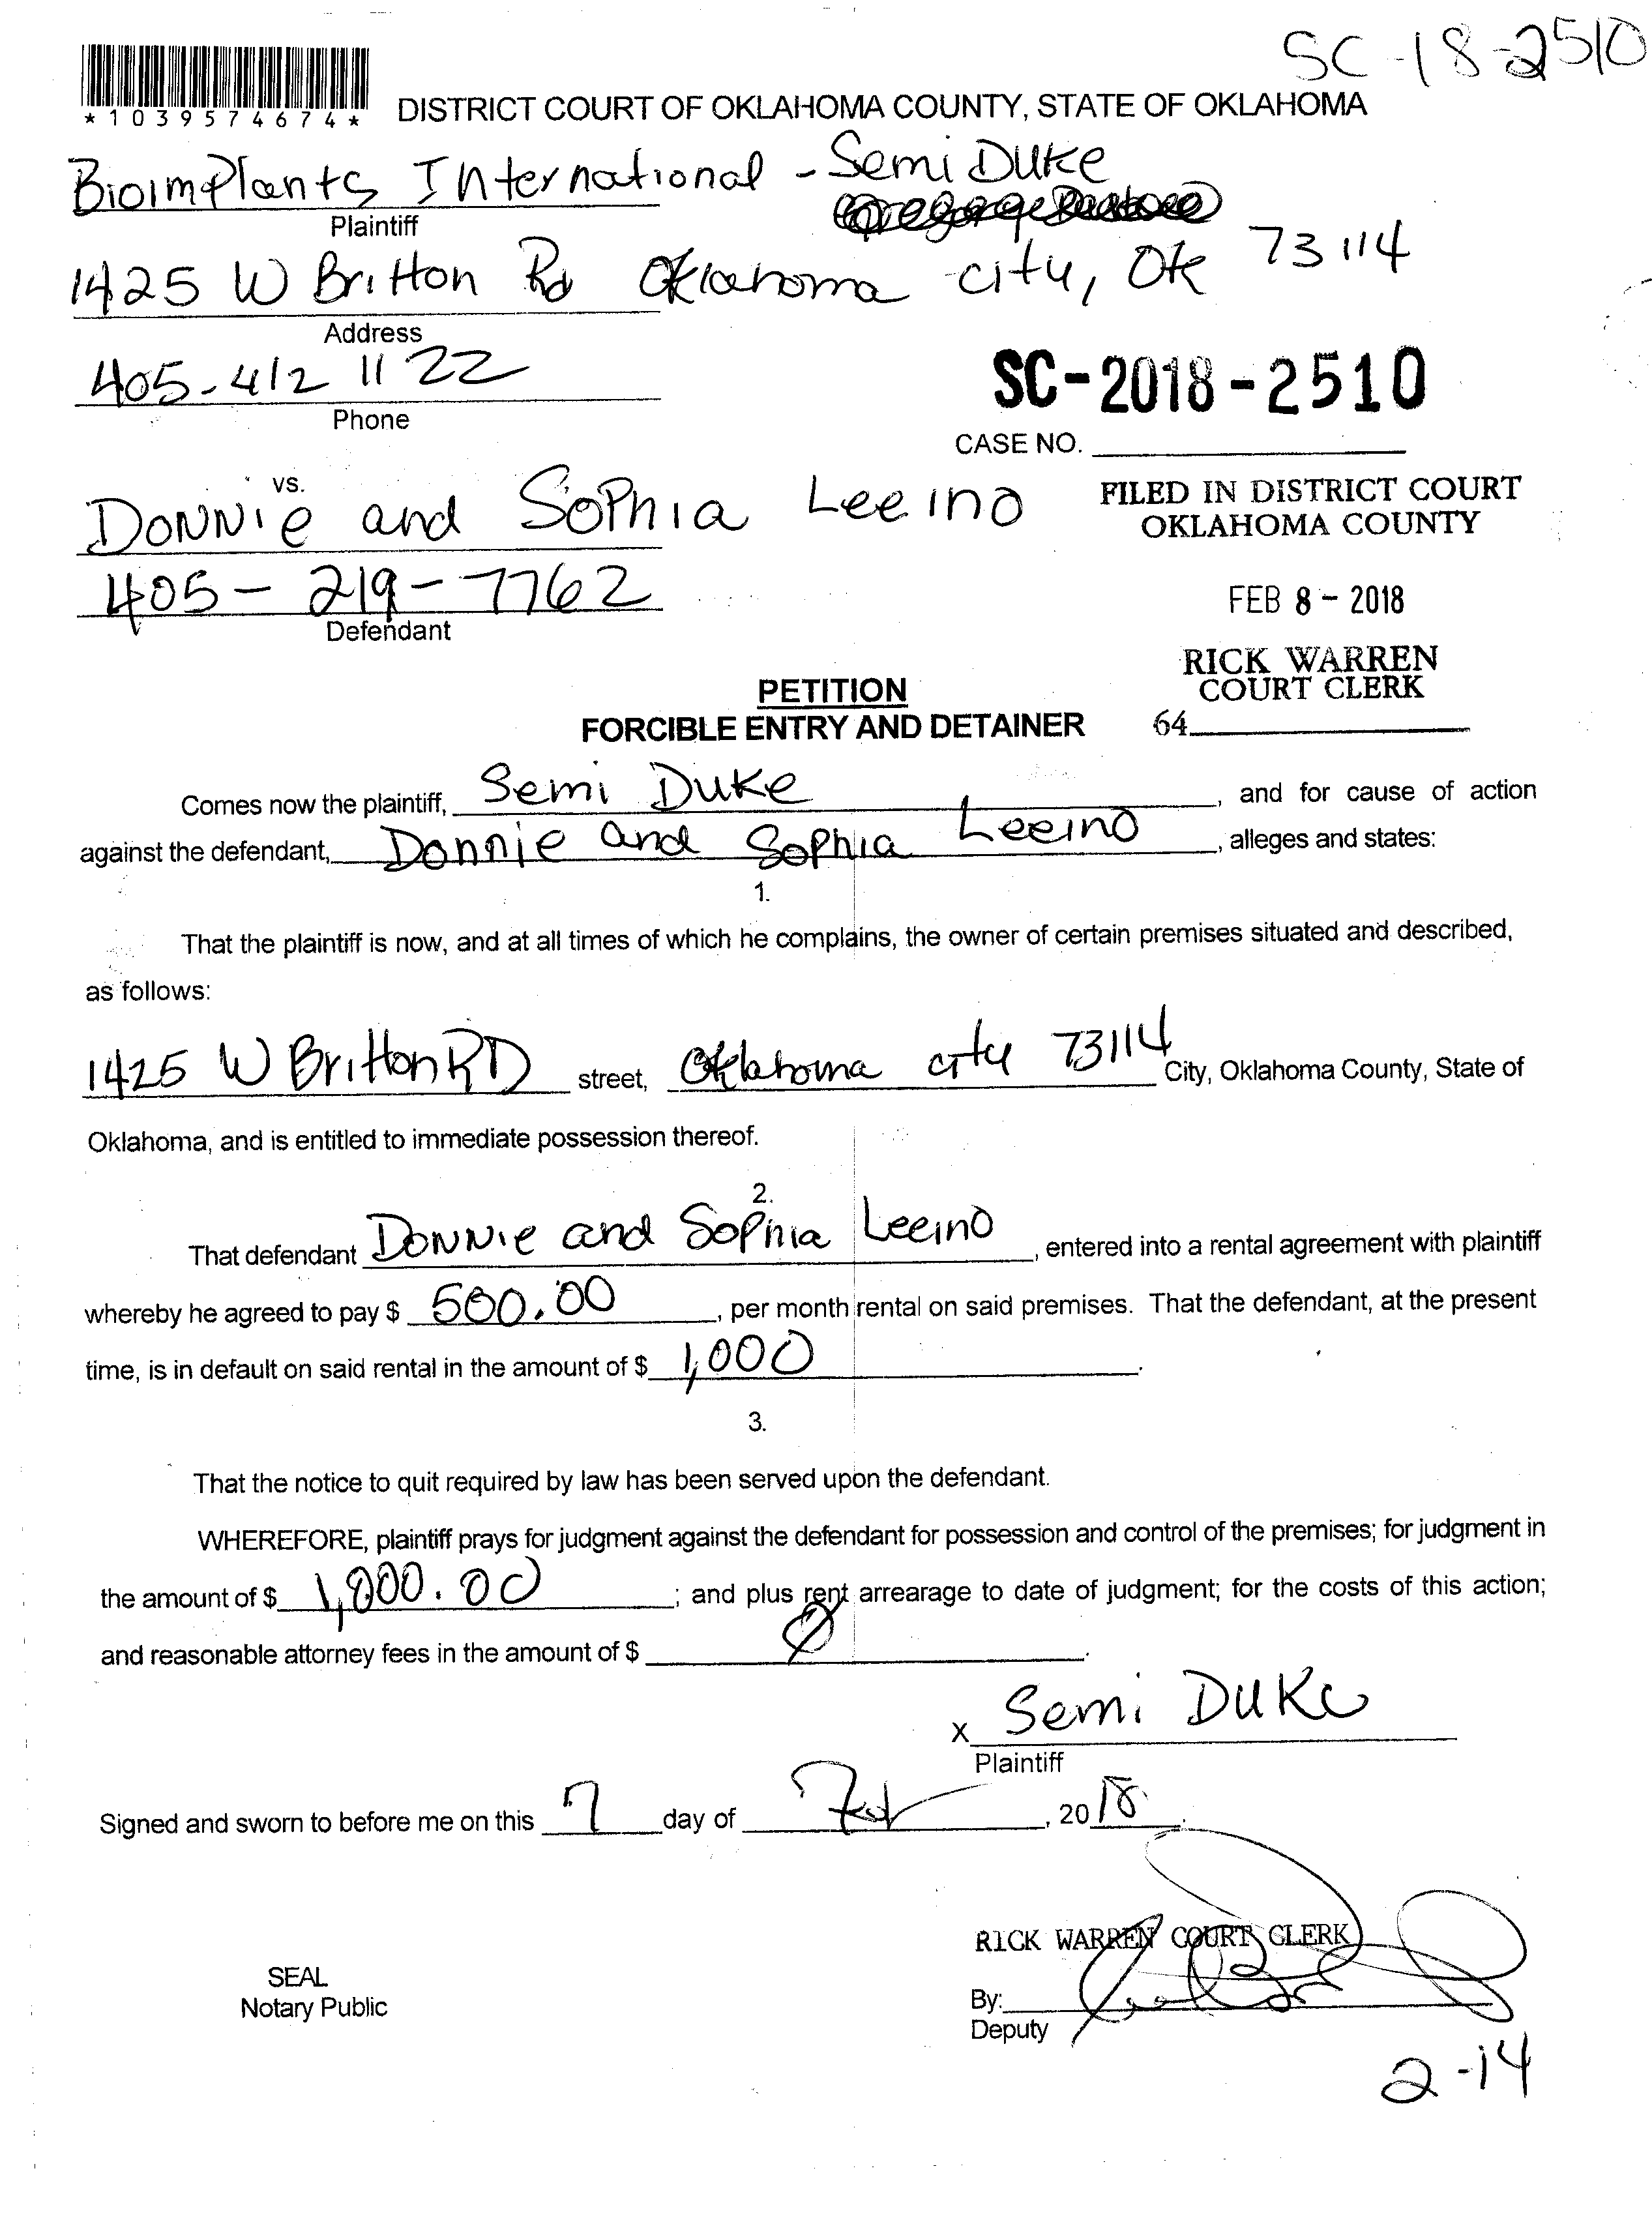 SC-18-2510
*1039574674*
DISTRICT COURT OF OKLAHOMA COUNTY, STATE OF OKLAHOMA
BioimPlants International - Semi Duke
Plaintiff
1425 W Britton Rd Oklahoma city, OK 73114
Address
405-412 1122
Phone
SC-2018-2510
CASE NO.
vs.
DONNie and SoPhia Leeino
405-219-7762
Defendant
FILED IN DISTRICT COURT
OKLAHOMA COUNTY
FEB 8 - 2018
RICK WARREN
COURT CLERK
64
PETITION
FORCIBLE ENTRY AND DETAINER
Comes now the plaintiff, Semi Duke, and for cause of action
against the defendant, Donnie and Sophia Leeino, alleges and states:
1.
That the plaintiff is now, and at all times of which he complains, the owner of certain premises situated and described,
as follows:
1425 W Britton RD street, Oklahoma city 73114 City, Oklahoma County, State of
Oklahoma, and is entitled to immediate possession thereof.
2.
That defendant DONNie and Sophia Leeino, entered into a rental agreement with plaintiff
whereby he agreed to pay $ 500.00, per month rental on said premises. That the defendant, at the present
time, is in default on said rental in the amount of $ 1,000.
3.
That the notice to quit required by law has been served upon the defendant.
WHEREFORE, plaintiff prays for judgment against the defendant for possession and control of the premises; for judgment in
the amount of $ 1,000.00; and plus rent arrearage to date of judgment; for the costs of this action;
and reasonable attorney fees in the amount of $ Ø.
x Semi Duke
Plaintiff
Signed and sworn to before me on this 7 day of Feb, 2018.
RICK WARREN COURT CLERK
SEAL
Notary Public
By:
Deputy
2-14